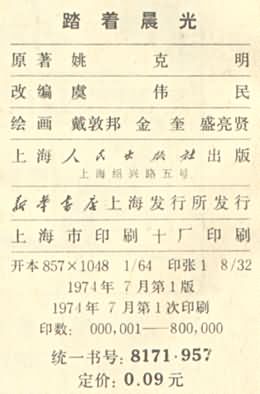 踏着晨光
原著 姚克明
改编 虞伟民
绘画 戴敦邦 金奎 盛亮贤
上海人民出版社出版
上海绍兴路五号
新华书店上海发行所发行
上海市印刷十厂印刷
开本 857×1048 1/64 印张 1 8/32
1974年7月第1版
1974年7月第1次印刷
印数: 000,001——800,000
统一书号: 8171·957
定价: 0.09元